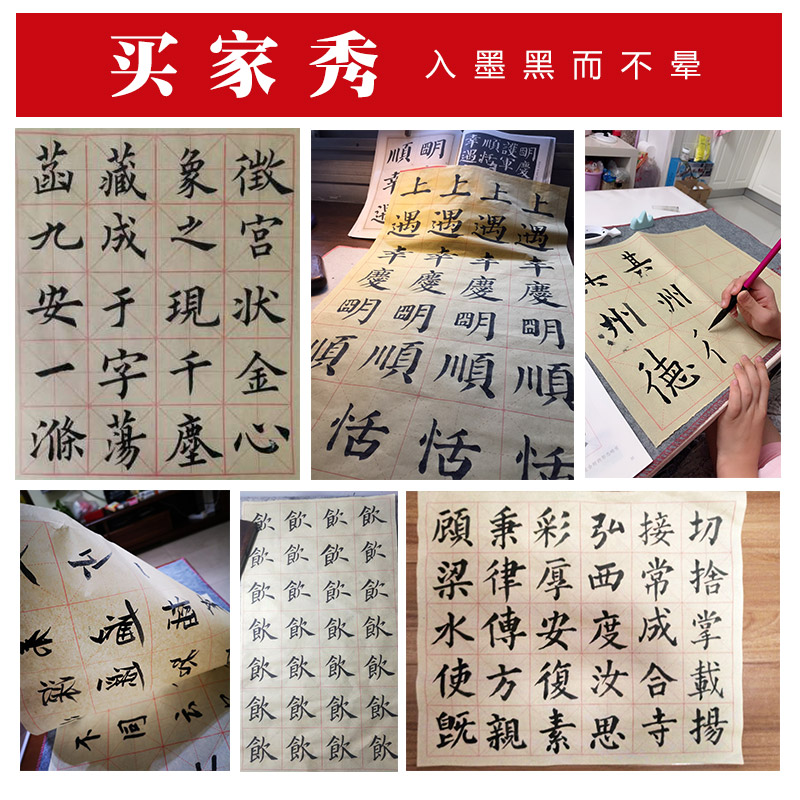 买家秀 入墨黑而不晕
菡藏象徵
九成之宮
安于現状
一字千金
滌蕩塵心
順明
幸順護明
遇將軍慶
上上上上
遇遇遇遇
幸幸幸幸
慶慶慶慶
明明明明
順順順順
恬恬恬
其其
州州
德彳
不同云
飲飲飲飲
飲飲飲飲
飲飲飲飲
飲飲飲飲
飲飲飲飲
飲飲飲飲
飲飲飲飲
顾秉彩弘接切
梁律厚西常捨
水傳安度成掌
使方復汝合載
既親素思寺揚